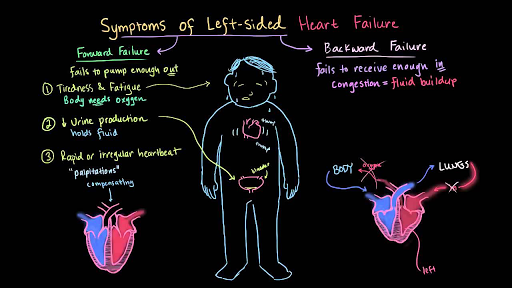 Symptoms of Left-sided Heart Failure
Forward Failure
Fails to pump enough out
① Tiredness & Fatigue
Body needs oxygen
② ↓ Urine production
holds fluid
③ Rapid or irregular heartbeat
"palpitations"
compensating
Backward Failure
fails to receive enough in
congestion = fluid buildup
bladder
BODY
oxygen
LUNGS
left